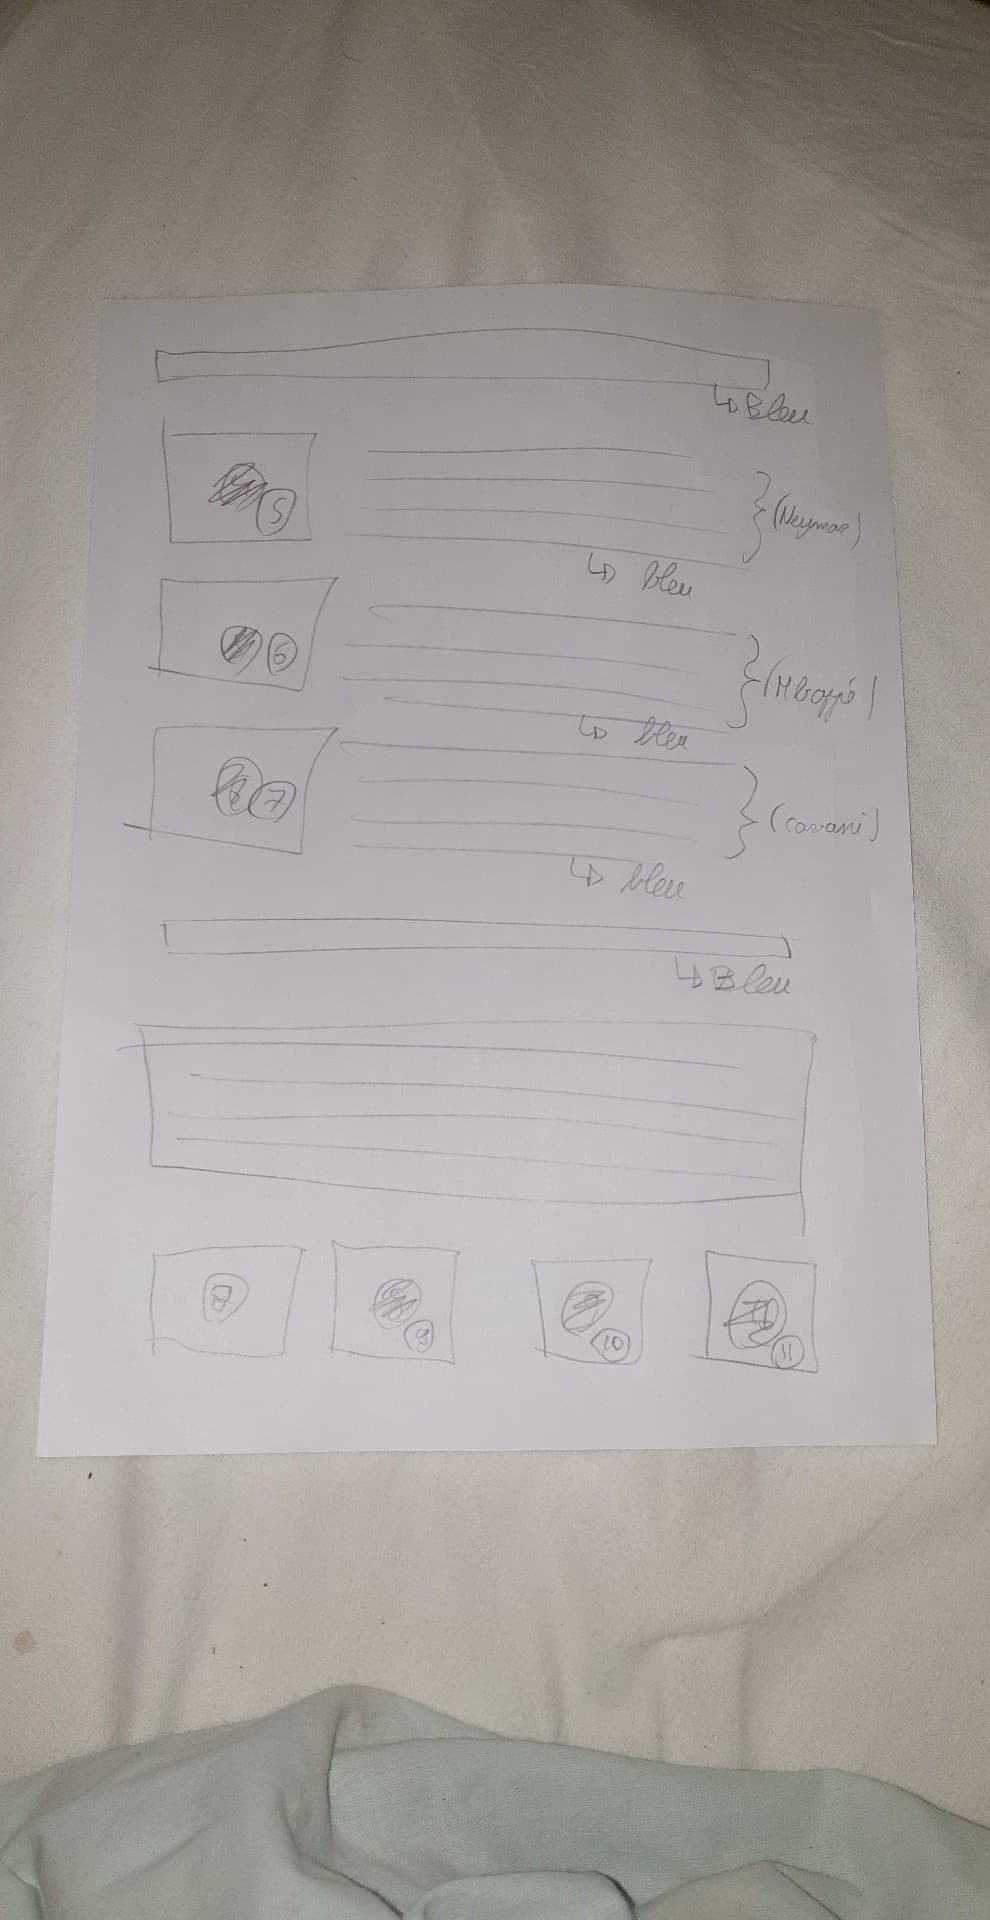 Bleu
5
(Neymar)
bleu
6
(Mbappé)
bleu
7
(cavani)
bleu
Bleu
8
9
10
11